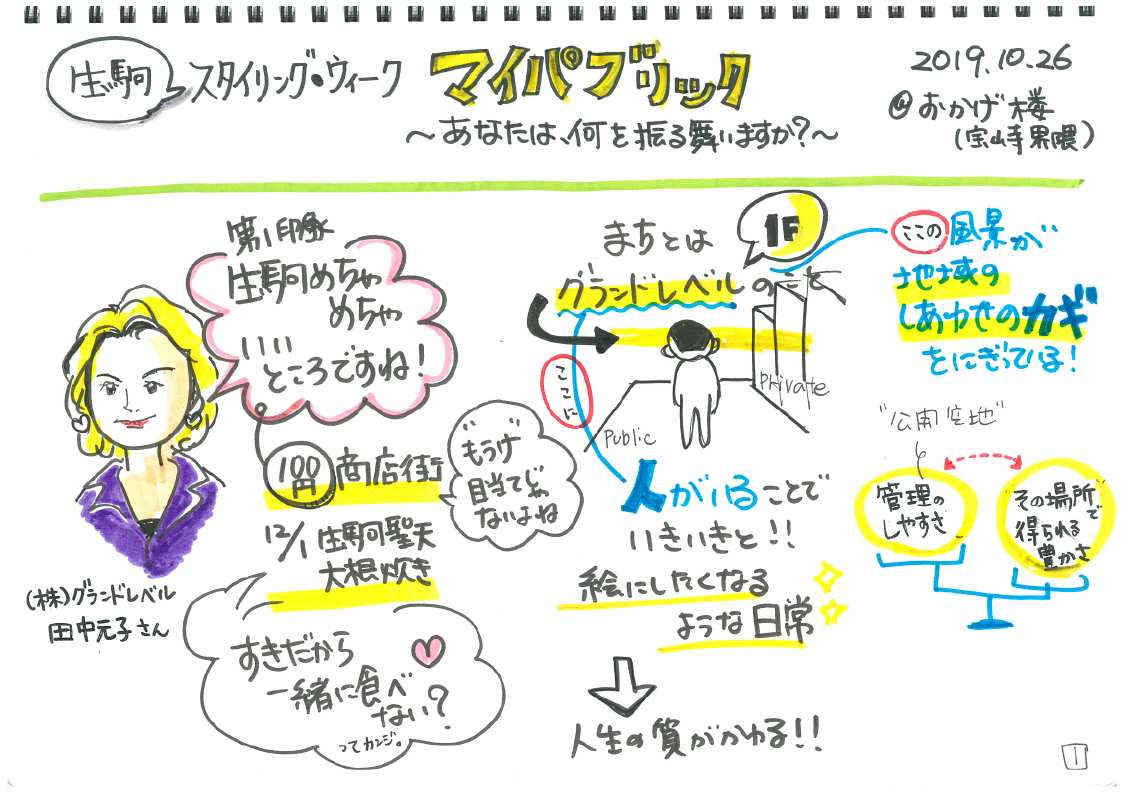 生駒 スタイリング・ウィーク マイパブリック
〜あなたは、何を振る舞いますか？〜
2019.10.26
@おかげ楼
(宝山寺界隈)
第1印象
生駒めちゃ
めちゃ
いい
ところですね!
100円 商店街
"もうけ"
目当てじゃ
ないよね
12/1 生駒聖天
大根炊き
すきだから
一緒に食べ
ない?
ってカンジ。
(株)グランドレベル
田中元子さん
まちとは
1F
グランドレベルのこと
Private
Public
ここに
人がいることで
いきいきと!!
絵にしたくなる
ような日常
人生の質がかわる!!
ここの風景が
地域の
しあわせのカギ
をにぎっている!
"公開空地"
管理の
しやすさ
"その場所"で
得られる
豊かさ
1